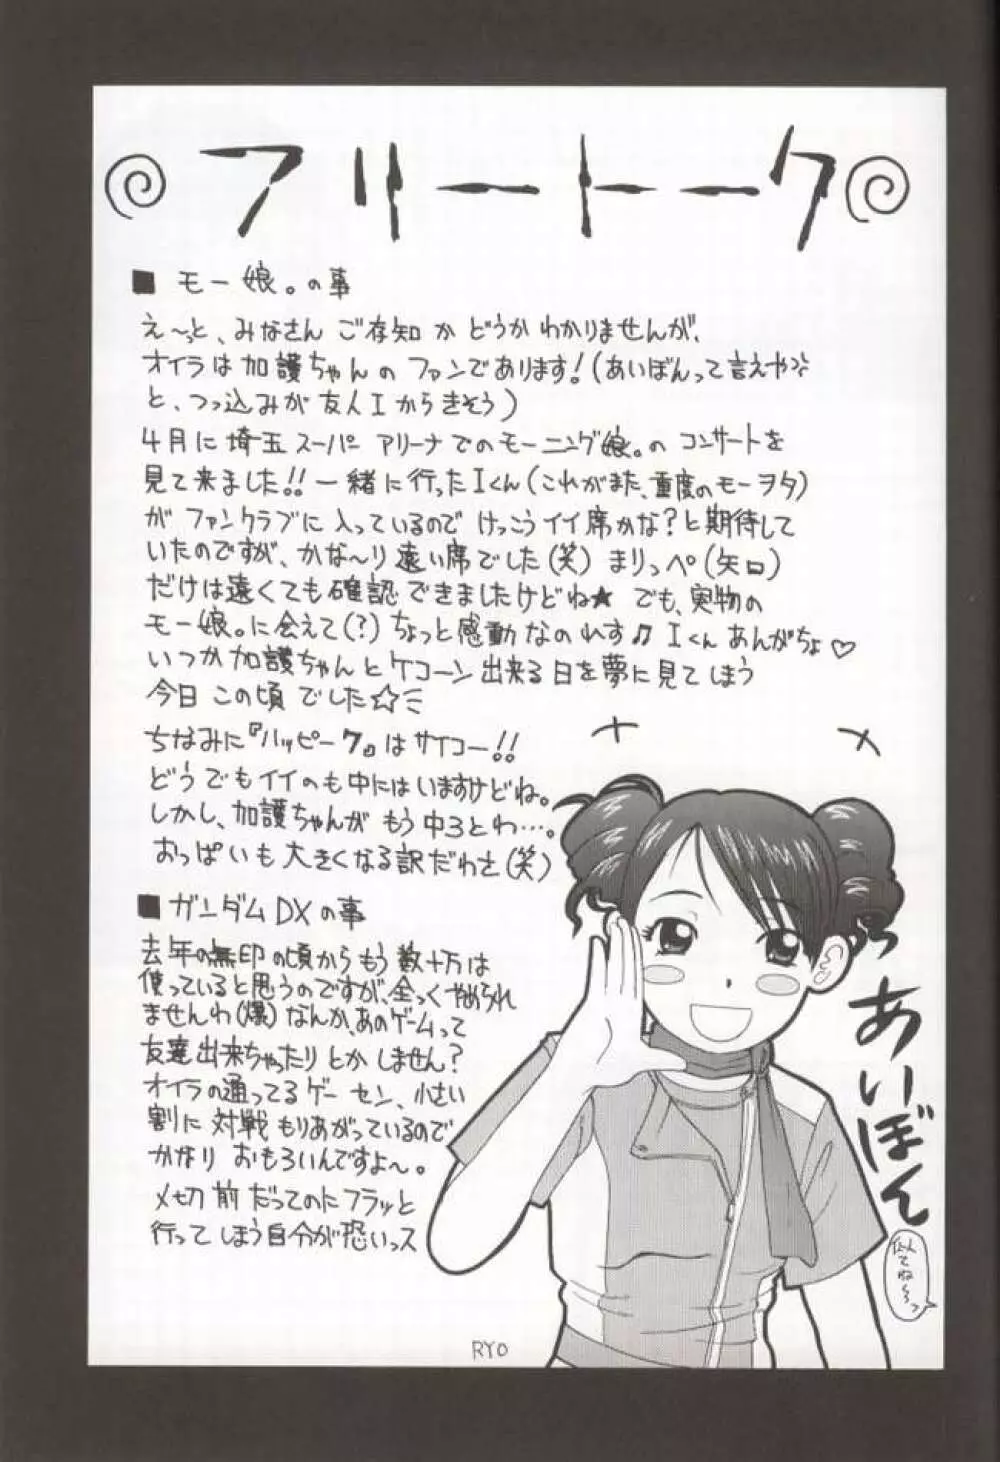 フリートーク
■ モー娘。の事
え〜っと、みなさん ご存知か どうか わかりませんが、
オイラは 加護ちゃんの ファンであります！(あいぼんって言えや
と、つっ込みが 友人Iから きそう)
4月に 埼玉スーパー アリーナでのモーニング娘。の コンサートを
見て来ました!! 一緒に行ったIくん(これがまた、重度のモーヲタ)
が ファンクラブに入っているので けっこうイイ席かな？と期待して
いたのですが、かな〜り遠い席でした(笑) まりっぺ(矢口)
だけは遠くても確認できましたけどね★ でも、実物の
モー娘。に会えて(？)ちょっと感動なのれす♫ Iくん あんがちょ♡
いつか加護ちゃんとケコーン出来る日を夢に見てしまう
今日 この頃 でした☆ミ
ちなみに『ハッピー7』はサイコー!!
どうでもイイのも中にはいますけどね。
しかし、加護ちゃんが もう中3とわ…。
おっぱいも 大きくなる訳だわさ(笑)
■ ガンダムDXの事
去年の無印の頃からもう 数十万は
使っていると思うのですが、全っくやめられ
ませんわ(爆) なんか、あのゲームって
友達出来ちゃったりとかしません？
オイラの通ってるゲーセン、小さい
割に 対戦もりあがっているので
かなり おもろいんですよ〜。
〆切前だってのにフラッと
行ってしまう自分が恐いっス
あいぼん
似てね〜っ
RYO